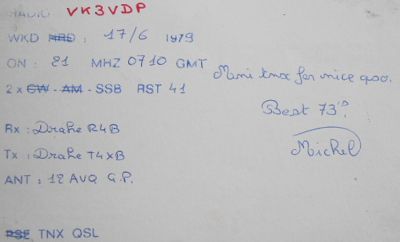 RADIO: VK3VDP
WKD HRD : 17/6 1979
ON : 21 MHZ 0710 GMT
2 x CW - AM - SSB RST 41
Mani tnx fer nice qso.
Best 73's.
Michel
Rx : Drake R4B
Tx : Drake T4XB
ANT : 12 AVQ G.P.
PSE TNX QSL